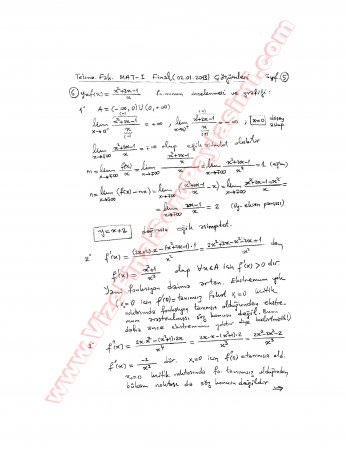 Tekno. Fak. MAT-I Final (02.01.2018) Çözümleri Syf (5)
⑥ y=f(x)= x²+2x-1 / x in incelenmesi ve grafiği:
1° A = (-∞,0) ∪ (0,+∞)
lim x→0⁻ x²+2x-1 / x = +∞ , lim x→0⁺ x²+2x-1 / x = -∞, x=0 düşey asimp
lim x→∓∞ x²+2x-1 / x = ∓∞ olup eğik asimptot olabilir
m = lim x→∓∞ f(x)/x = lim x→∓∞ (x²+2x-1 / x) / x = lim x→∓∞ x²+2x-1 / x² = 1 (eğim)
n = lim x→∓∞ (f(x)-mx) = lim x→∓∞ x²+2x-1 / x - x = lim x→∓∞ x²+2x-1-x² / x =
= lim x→∓∞ 2x-1 / x = 2
y=x+2 doğrusu eğik asimptot.
2° f'(x) = (2x+2)·x-(x²+2x-1)·1 / x² = 2x²+2x-x²-2x+1 / x² den
f'(x) = x²+1 / x² olup ∀x∈A için f'(x)>0 dır.
Yani fonksiyon daima artan. Ekstremum yok
(x=0 için f'(0) tanımsız fakat x=0 kritik
noktasında fonksiyon tanımsız olduğundan ekstre-
mum araştırması söz konusu değil.
daha önce ekstremum yoktur diye belirtmiştik!)
3° f''(x) = 2x·x²-(x²+1)·2x / x⁴ = 2x·x-(x²+1)·2 / x³ = 2x²-2x²-2 / x³
f''(x) = -2 / x³ dür. x=0 için f''(0) tanımsız
x=0 kritik noktasında fonk. tanımsız olduğundan
büküm noktası da söz konusu değildir.
www.VizeFinalSorulariPaylasimi.com